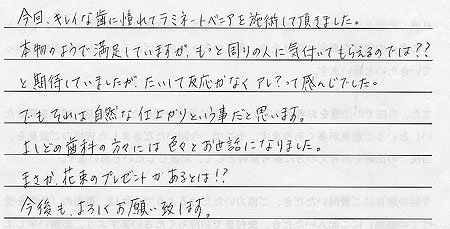 今回、キレイな歯に憧れてラミネートベニアを施術して頂きました。
本物のようで満足していますが、もっと周りの人に気付いてもらえるのでは??
と期待していましたが、たいして反応がなくアレ?って感じでした。
でもそれは自然な仕上がりという事だと思います。
よしどの歯科の方々には色々とお世話になりました。
まさか、花束のプレゼントがあるとは!?
今後も、よろしくお願い致します。